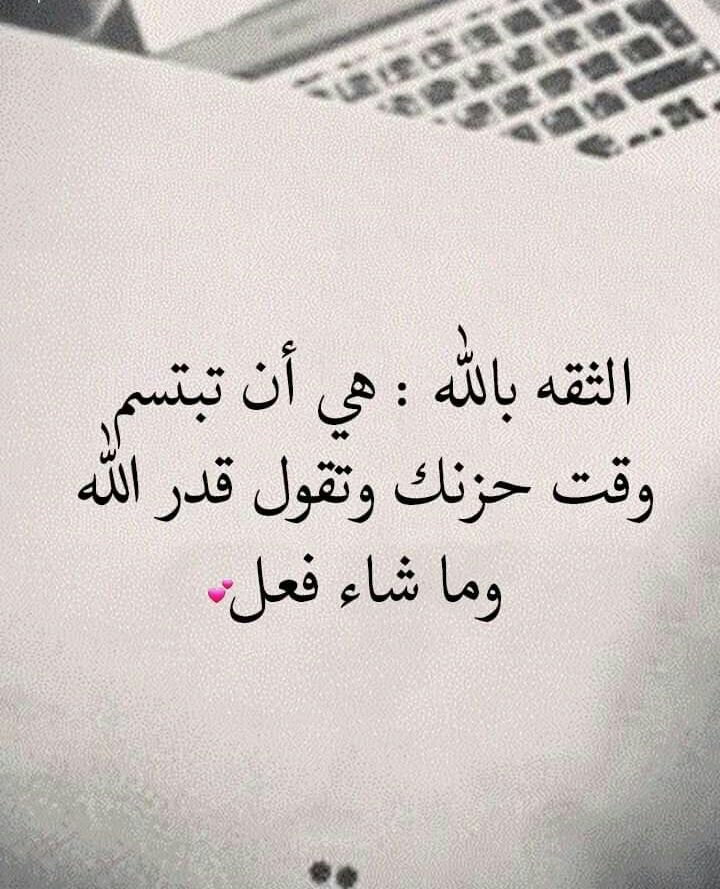 الثقه بالله : هي أن تبتسم
وقت حزنك وتقول قدر الله
وما شاء فعل💕